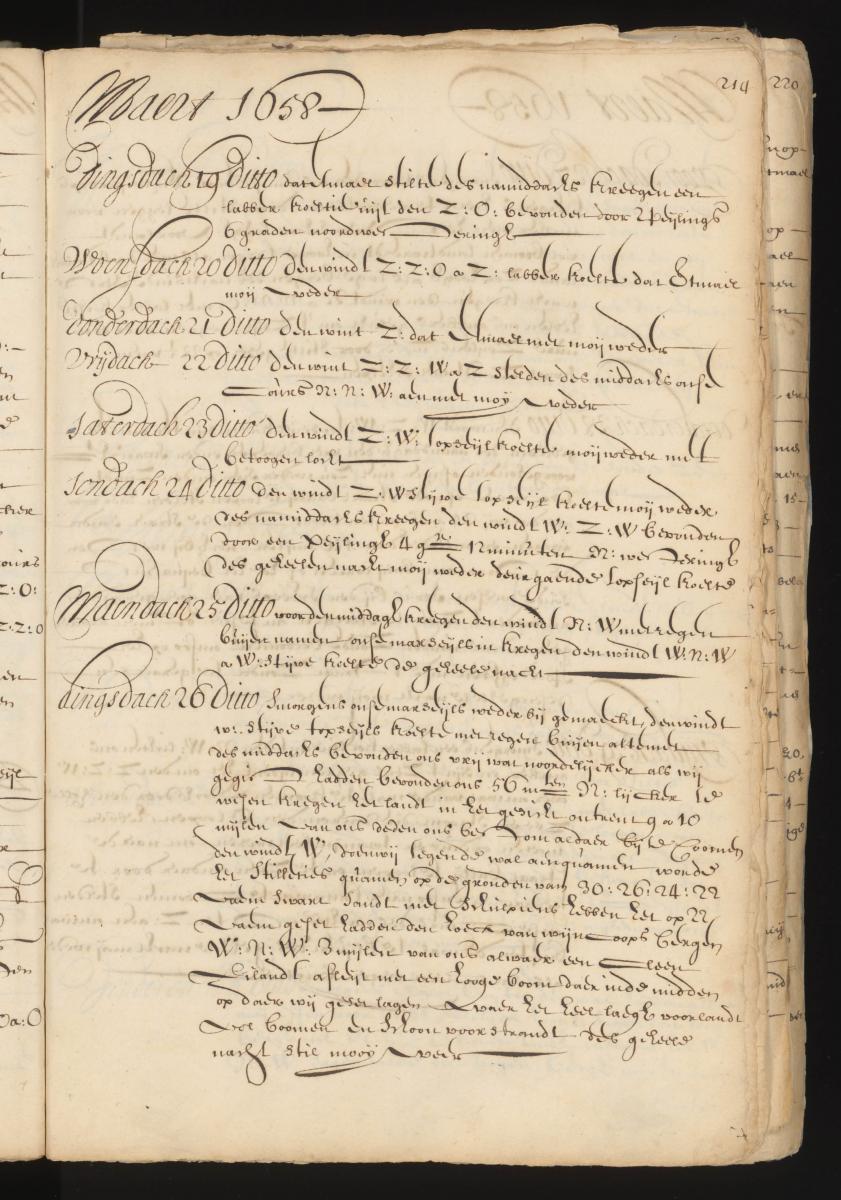 214
Maert 1658
dingsdach 19 Ditto dat etmael stilte des namiddachs kreegen een
labber koeltie uijt den Z: O: bevonden door 2 Peijlings
6 graden noordwesteringh
Woensdach 20 Ditto den windt Z: Z: O a Z: labber koelte dat Etmael
moij weder
donderdach 21 Ditto den wint Z: dat Etmael met moij weder
Vrijdach 22 Ditto den wint Z: Z: W a Z stelden des middachs onse
Cours N: N: W: aen met moij weder
Saterdach 23 Ditto den windt Z: W: topseijl koelte moij weder met
betoogen locht
Sondach 24 Ditto den windt Z: W stijve topseijl koelte moij weder
des namiddachs kreegen den windt W: Z: W bevonden
door een Peijlingh 4 gr 12 minuten N: westeringh
des geheelen nacht moij weder deurgaende topseijl koelte
Maendach 25 Ditto voor den middagh kreegen den windt N: W met regen
buijen namen onse marseijls in kregen den windt W: N: W
a W: stijve koelte de geheele nacht
dingsdach 26 Ditto Smorgens onse marseijls weder bij gemaeckt, den windt
W: stijve topseijls koelte met regen buijen altemet
des middachs bevonden ons vrij wat noordelijcker als wij
gegist hadden bevonden ons 56 mten N: lijcker te
wesen kregen het landt in het gesicht ontrent 9 a 10
mijlen van ons deden ons best om aldaer bij te Coomen
den windt W, doen wij tegen de wal aenquamen worde
het stilleties quamen op de gronden van 30: 26: 24: 22
vaem swart sandt met schulpiens hebben het op 22
vaem geset hadden den hoeck van wijn Coops bergen
W: N: W: 3 mijlen van ons alwaer een Cleen
Eilandt afleijt met een hooge boom daer inde midden
op daer wij geset lagen waer het heel laegh voorlandt
vol boomen en schoon voorstrandt des geheele
nacht stil mooij weer
220